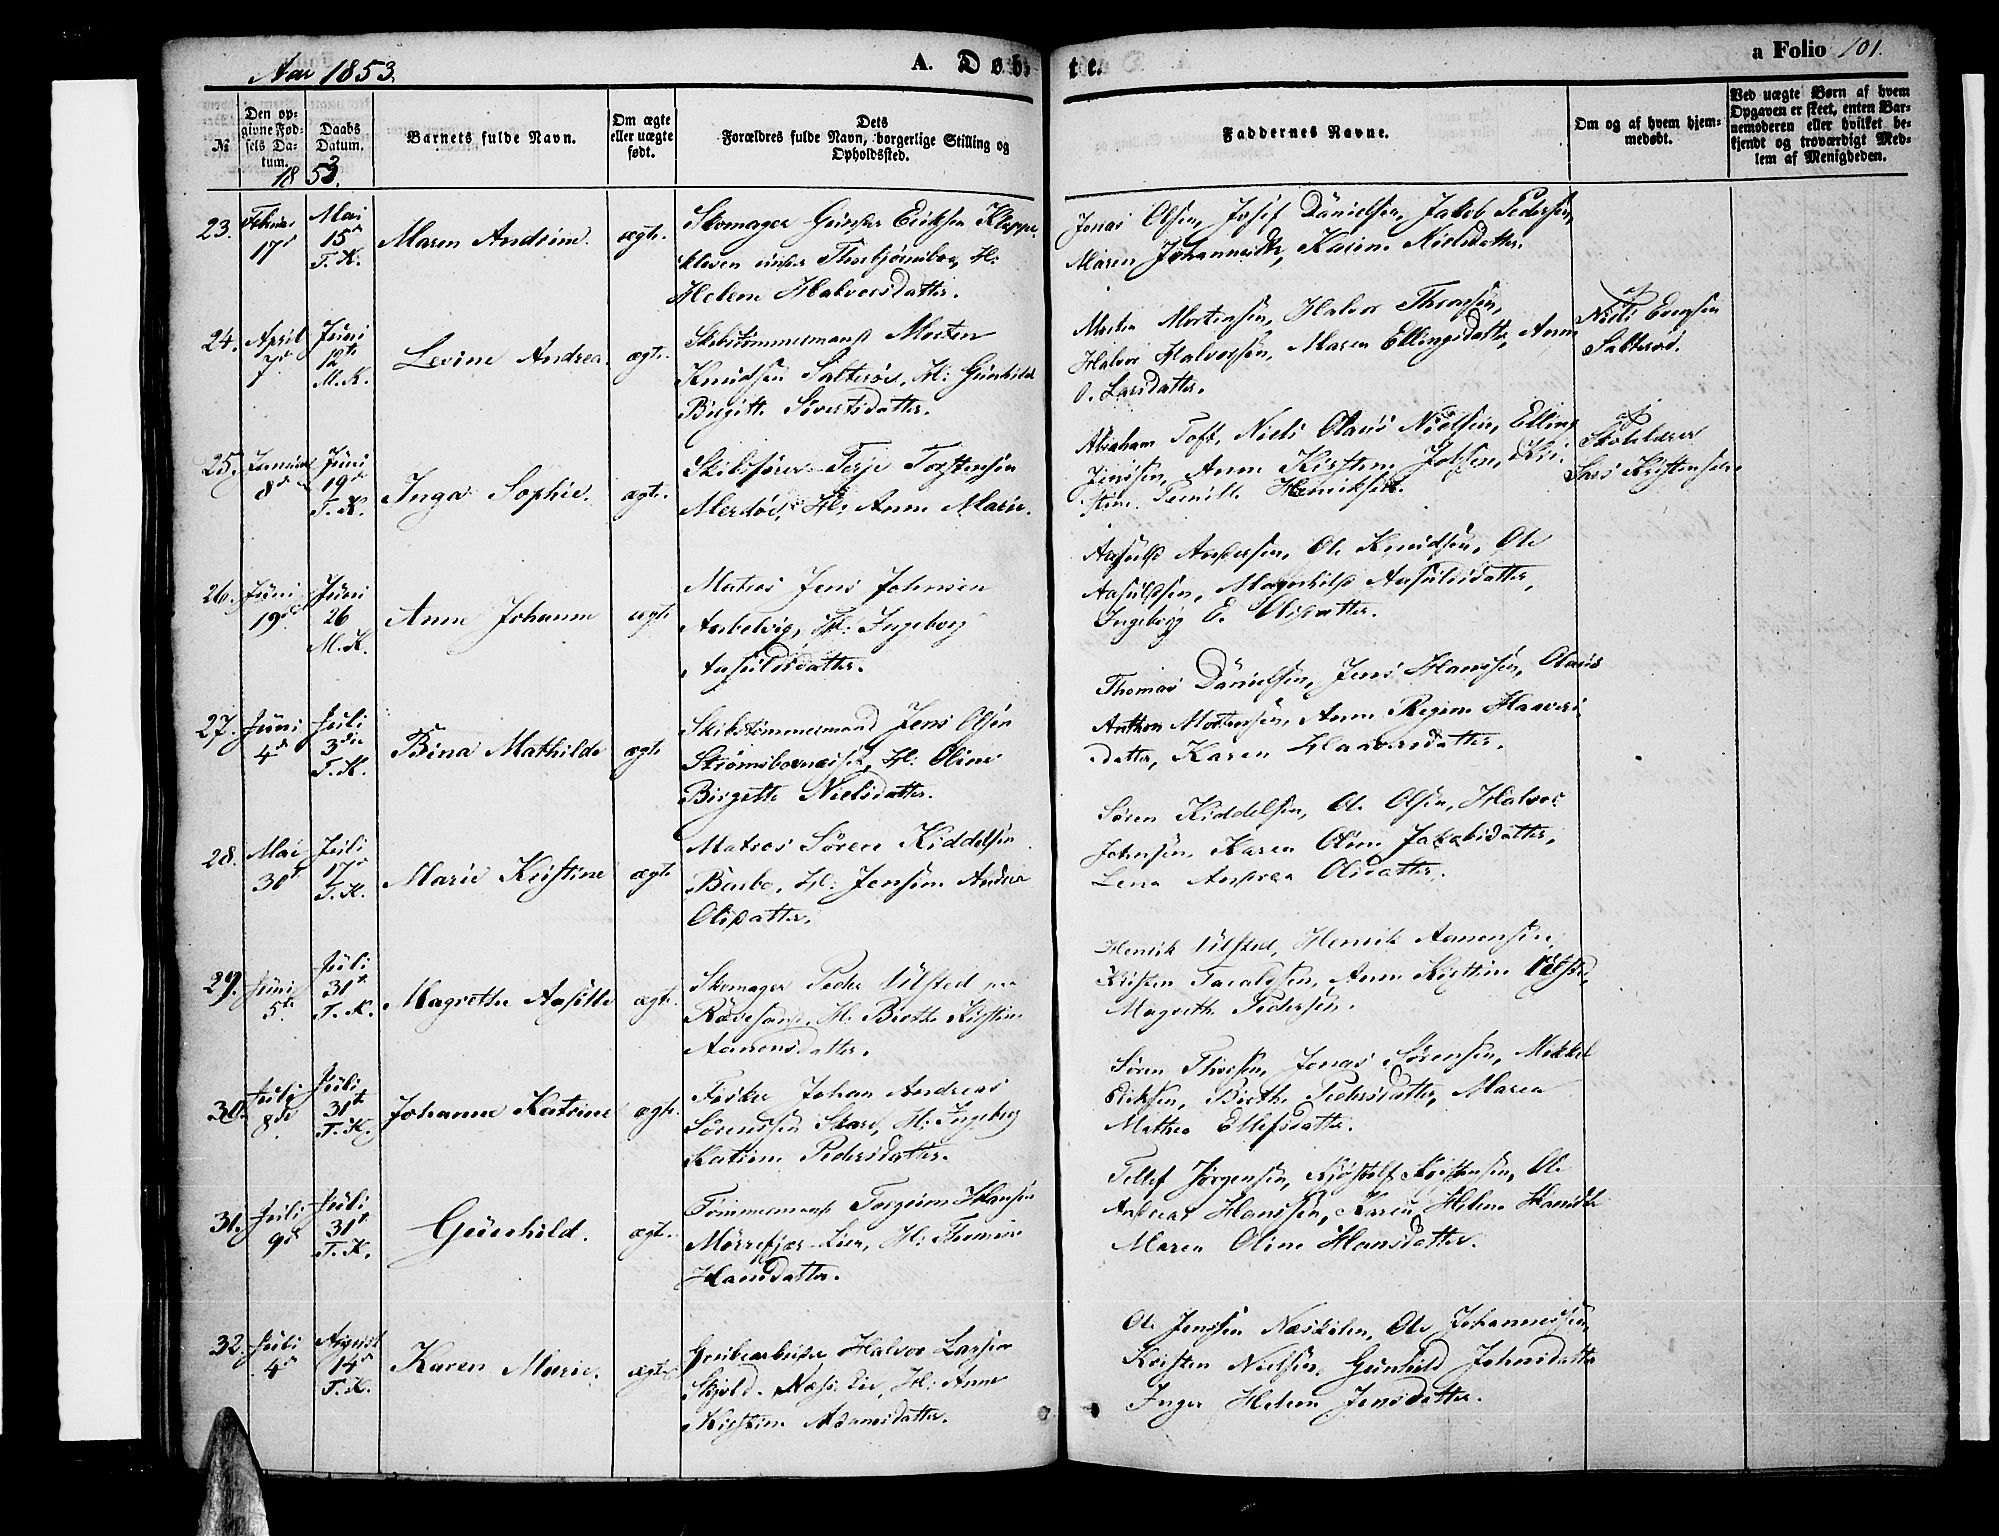 Aar 1853.
A. Døb-
te.
a Folio 101.
No
Den op-
givne Fød-
sels Da-
tum.
Daabs
Datum.
1853.
Barnets fulde Navn.
Om ægte
eller uægte
født.
Dets
Forældres fulde Navn, borgerlige Stilling og
Opholdssted.
Faddernes Navne.
Om og af hvem hjem-
medøbt.
Ved uægte Børn af hvem
Opgaven er skeet, enten Bar-
nemoderen eller hvilket be-
kjendt og troværdigt Med-
lem af Menigheden.
23.
17
Mai
15
T. K.
Maren Andrine.
ægte.
Skomager Gunder Eriksen
H:
Helene Halvorsdatter.
Jonas Olsen, Josef Danielsen, Jakob Pedersen,
Maren Johannesdtr, Karine Nielsdatter.
24.
April
7
Juni
12te
M. K.
Levine Andrea.
ægte.
Skibstømmermand Morten
Knudsen Salterød, H: Gunhild
Birgitte Sivertsdatter.
Morten Mortensen, Halvor Thronsen,
Halvor Halvorsen, Maren Ellingsdatter, Anne
O. Larsdatter.
af
Niels
Salterød.
25.
Januar
8de
Juni
19de
T. K.
Inga Sophie.
ægte.
Skibsfører Terje Torstensen
Merdø, H: Anne Marie.
Abraham Toft, Niels Olaus Nielsen, Elling
Jenssen, Anne Kirstine Jobsen, Kri-
stine Pernille Henriksen.
af
Skolelærer
Lars Kristensen
26.
Juni
19de
Juni
26
M. K.
Anne Johanne
ægte
Matros Jens Johnsen
H: Ingeborg
Aasulvsdatter.
Aasuld Andersen, Ole Knudsen, Ole
Aasuldsen, Magnhild Aasulvsdatter,
Ingeborg E. Olsdatter.
27.
Juni
4de
Juli
3die
T. K.
Bina Mathilde
ægte
Skibstømmermand Jens Olsen
Strømsbonæset, H: Oline
Birgitte Nielsdatter.
Thomas Danielsen, Jens Hanssen, Olaus
Anthon Mortensen, Anne Regine Haavers-
datter, Karen Haaversdatter.
28.
Mai
30te
Juli
17
T. K.
Marie Kristine
ægte
Matros Søren Kiddelsen
Barbo, H: Jensine Andrea
Olsdatter.
Søren Kiddelsen, Ole Olsen, Halvor
Johnsen, Karen Oline Jakobsdatter,
Lena Andrea Olsdatter.
29.
Juni
5te
Juli
31te
T. K.
Magrethe Aasille
ægte.
Skomager Peder Ulsted paa
Revesand, H: Birthe Kirstine
Aanonsdatter.
Henrik Ulsted, Henrik Aanonsen,
Kristen Taraldsen, Anne Kirstine Ulsted,
Magrethe Pedersen.
30.
Juli
8de
Juli
31te
T. K.
Johanne Katrine
ægte.
Fisker Johan Andreas
Sørenssen Skare, H: Ingeborg
Katrine Pedersdatter.
Søren Thorsen, Jonas Sørensen, Mikkel
Eriksen, Birthe Pedersdatter, Maren
Mathea Ellefsdatter.
31.
Juli
9de
Juli
31te
T. K.
Gunhild.
ægte.
Tømmermand Torgrim Hansen
Mørrefjær Lien, H: Thomine
Hansdatter.
Tellef Jørgensen, Kjøstolf Kristensen, Ole
Andreas Hanssen, Karen Helene Hansdtr
Maren Oline Hansdatter.
32.
Juli
4de
August
14de
T. K.
Karen Marie.
ægte
Grubearbeider Halvor Larssen
Skjold. Næs, H: Anne
Kirstine Adamsdatter.
Ole Jenssen Næskilen, Ole Johannessen,
Kristen Nielsen, Gunhild Johnsdatter
Inger Helene Jensdatter.